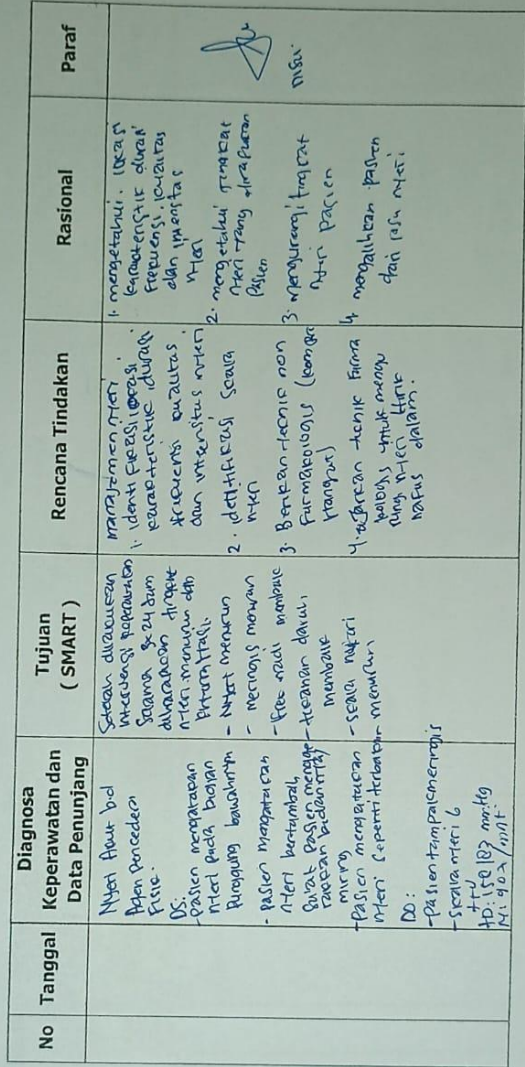 No
Tanggal
Diagnosa
Keperawatan dan
Data Penunjang
Tujuan
( SMART )
Rencana Tindakan
Rasional
Paraf
Nyeri Akut bd
Agen Pencedera
Fisik.
DS:
- pasien mengatakan
nyeri pada bagian
punggung bawahnya
- Pasien mengatakan
nyeri bertambah
saat pasien mengge
rakkan badannya/
miring
- Pasien mengatakan
nyeri seperti terbakar
DO:
- Pasien tampak meringis
- skala nyeri 6
TTV
TD: 150/83 mmHg
N: 90x/mnt
Setelah dilakukan
intervensi keperawatan
selama 3x24 jam
diharapkan tingkat
nyeri menurun dan
- Nyeri menurun
- meringis menurun
- frek nadi membaik
- tekanan darah
membaik
- skala nyeri
menurun
manajemen nyeri
1. identifikasi, lokasi,
karakteristik durasi,
frekuensi kualitas,
dan intensitas nyeri
2. identifikasi skala
nyeri
3. Berikan teknik non
Farmakologis (kompres
Hangat)
4. ajarkan teknik Farma
kologis untuk mengu
rangi nyeri
nafas dalam.
1. mengetahui. lokasi
karakteristik durasi
Frekuensi, kualitas
dan intensitas
nyeri
2. mengetahui tingkat
nyeri yang dirasakan
Pasien
3. mengurangi tingkat
nyeri pasien
4. mengalihkan pasien
dari rasa nyeri